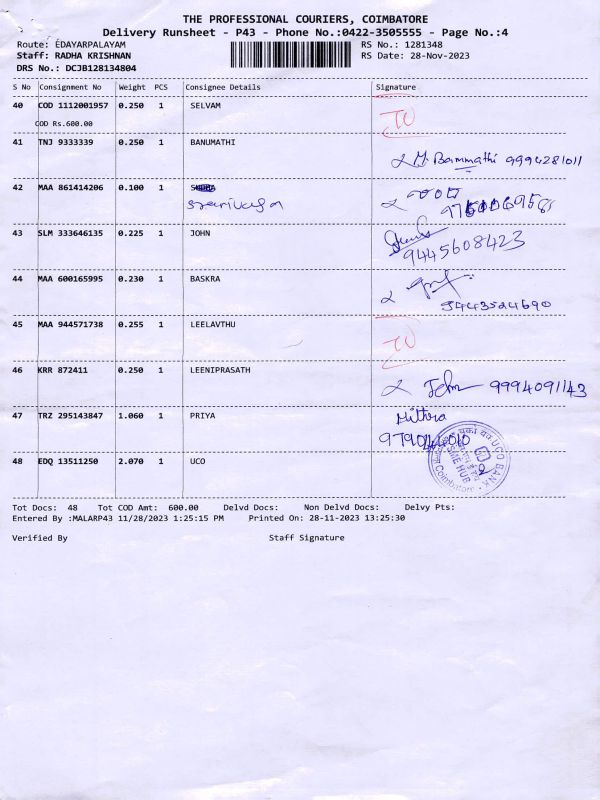 THE PROFESSIONAL COURIERS, COIMBATORE
Delivery Runsheet - P43 - Phone No.:0422-3505555 - Page No.:4
Route: EDAYARPALAYAM RS No.: 1281348
Staff: RADHA KRISHNAN RS Date: 28-Nov-2023
DRS No.: DCJB128134804
S No Consignment No Weight PCS Consignee Details Signature
40 COD 1112001957 0.250 1 SELVAM
COD Rs.600.00
41 TNJ 9333339 0.250 1 BANUMATHI
9994281011
42 MAA 861414206 0.100 1
43 SLM 333646135 0.225 1 JOHN
9445608423
44 MAA 600165995 0.230 1 BASKRA
9443524690
45 MAA 944571738 0.255 1 LEELAVTHU
46 KRR 872411 0.250 1 LEENIPRASATH
John 9994091143
47 TRZ 295143847 1.060 1 PRIYA Mithra
48 EDQ 13511250 2.070 1 UCO
UCO BANK
SME HUB
Coimbatore
Tot Docs: 48 Tot COD Amt: 600.00 Delvd Docs: Non Delvd Docs: Delvy Pts:
Entered By :MALARP43 11/28/2023 1:25:15 PM Printed On: 28-11-2023 13:25:30
Verified By Staff Signature